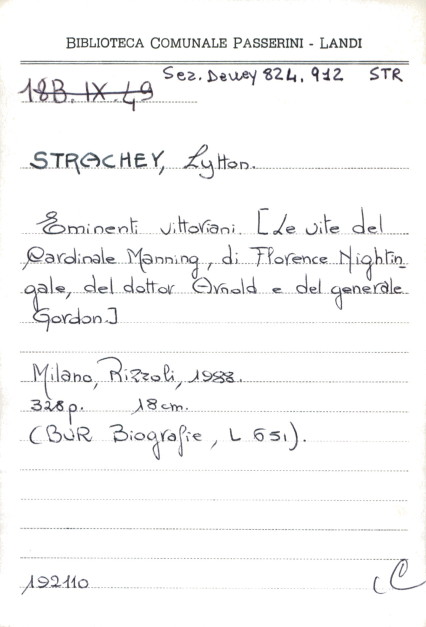 BIBLIOTECA COMUNALE PASSERINI - LANDI
Sez. Dewey 824.912 STR
18B.IX.49
STRACHEY, Lytton.
Eminenti vittoriani. [Le vite del
Cardinale Manning, di Florence Nightin_
gale, del dottor Arnold e del generale
Gordon.]
Milano, Rizzoli, 1988.
328p. 18cm.
(BUR Biografie, L 651).
192110